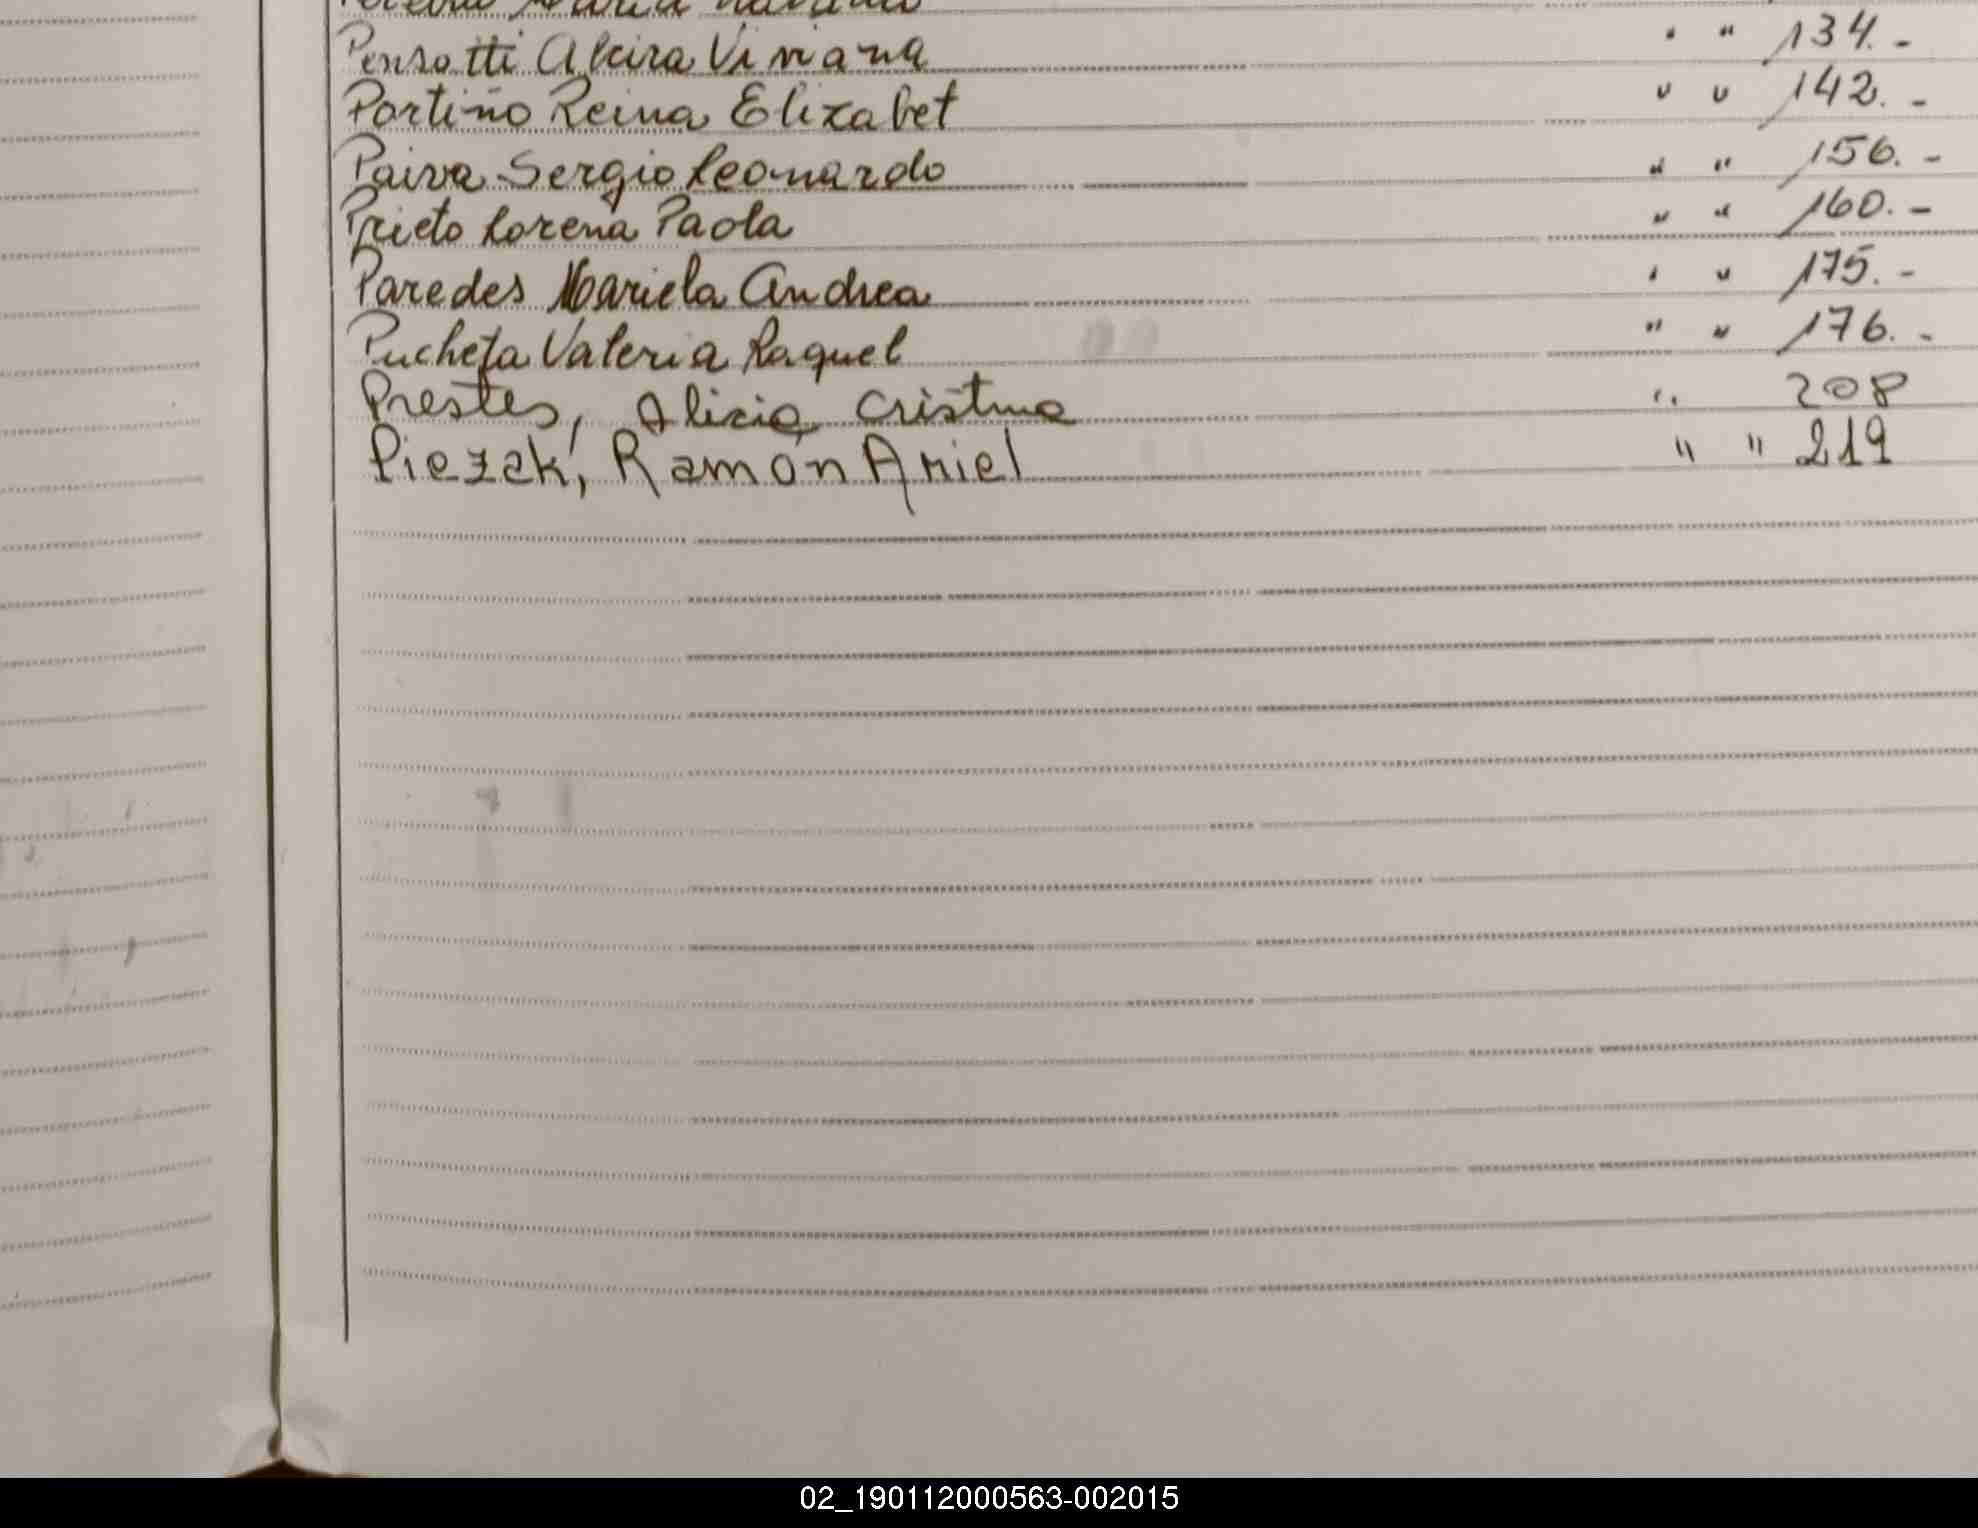 Maria
Pensotti Alcira Viviana " " 134.-
Portiño Reina Elizabet " " 142.-
Paiva Sergio Leonardo " " 156.-
Prieto Lorena Paola " " 160.-
Paredes Mariela Andrea " " 175.-
Pucheta Valeria Raquel " " 176.-
Prestes, Alicia Cristina " 208
Piezak, Ramón Ariel " " 219
02_190112000563-002015